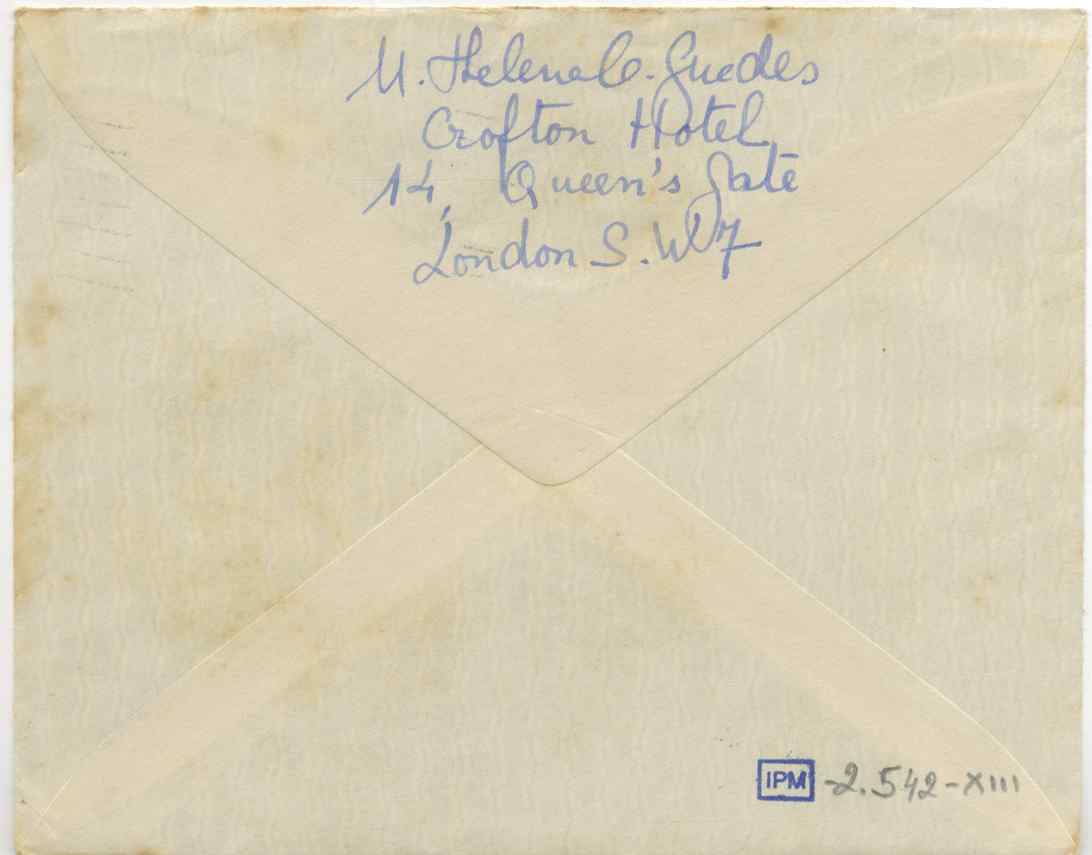 M. Helena C. Guedes
Crofton Hotel
14, Queen's Gate
London S.W7
IPM -2.542-XIII